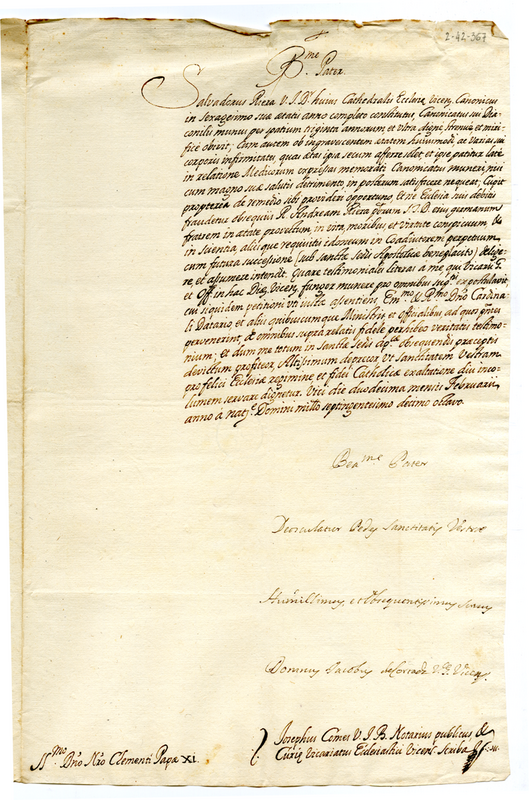 2-42-367
B.me Pater.
Salvadorus Riera V.I.D.r huius Cathedralis Ecclesiæ Vicen. Canonicus
in sexagesimo suæ ætatis anno completo constitutus, Canonicatus sui
munus per spatium triginta annorum et vltra digne, strenue et miri-
fice obivit; Cum autem ob ingravescentem ætatem huiusmodi, ac varias sui
corporis infirmitates, quas ætas ipsa secum afferre solet, et ipse patitur late
in relatione Medicorum expressas memorati Canonicatus muneri, nisi
cum magno suæ salutis detrimento, in posterum satisfacere nequeat; Cupit
propterea de remedio sibi provideri opportuno, et ne Ecclesia suis debitis
fraudetur obsequiis R. Andream Riera I.V.D. eius germanum
fratrem in ætate provectum, in vita, moribus, et virtute conspicuum, ac
in scientia, aliisque requisitis idoneum in Coadiutorem perpetuum
cum futura successione (sub sanctæ sedis Apostolicæ beneplacito) elige-
re, et assumere intendit. Quare testimoniales literas a me, qui Vicarii G.
et Off. in hac Diæc. Vicen. fungor munere pro omnibus expostulavit,
cui siquidem petitioni vt iustæ assentiens, Em.mo et R.mo Dño Cardina-
li Datario et aliis quibuscumque Ministris et officialibus, ad quos
pervenerint, de omnibus supra relatis fidele perhibeo veritatis testimo-
nium; et dum me totum in sanctæ sedis ap.cæ obsequendis præceptis
devictum profiteor, Altissimum deprecor vt Sanctitatem Vestram
pro felici Ecclesiæ regimine, et fidei Catholicæ exaltatione diu inco-
lumem servare dignetur. Vici die duodecima mensis Februarii
anno à nat.e Domini mill.o septingentesimo decimo octavo.
Bea.me Pater
Deosculatur Pedes Sanctitatis Vestræ
Humillimus, et Obsequentissimus Servus
Domnus Jacobus V.G. Vicen.
Josephus Comes V.I.B. Notarius publicus, &
Curiæ Vicariatus Ecclesiastici Vicen. Scriba
SS.mo Dño Nro Clementi Papæ XI.